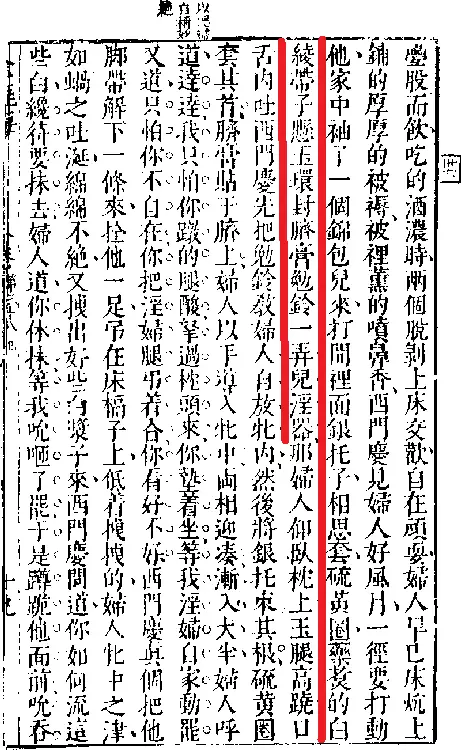 疊股而飲吃的酒濃時兩個脫剝上床交歡自在頑耍婦人早已床炕上
鋪的厚厚的被褥被裡薰的噴鼻香西門慶見婦人好風月一徑要打動
他家中袖了一個錦包兒來打開裡面銀托子相思套硫黃圈藥煮的白
綾帶子懸玉環封臍膏勉鈴一弄兒淫器那婦人仰臥枕上玉腿高蹺口
舌內吐西門慶先把勉鈴教婦人自放牝內然後將銀托束其根硫黃圈
套其首臍膏貼于臍上婦人以手導入牝中兩相迎湊漸入大半婦人呼
道達達我只怕你蹾的腿酸拏過枕頭來你墊着坐等我淫婦自家動罷
又道只怕你不自在你把淫婦腿吊着合你看好不好西門慶真個把他
脚帶解下一條來拴他一足吊在床槅子上低着拽拽的婦人牝中之津
如蝸之吐涎綿綿不絕又拽出好些白漿子來西門慶問道你如何流這
些白纔待要抹去婦人道你休抹等我吮咂了罷于是蹲跪他面前吮吞